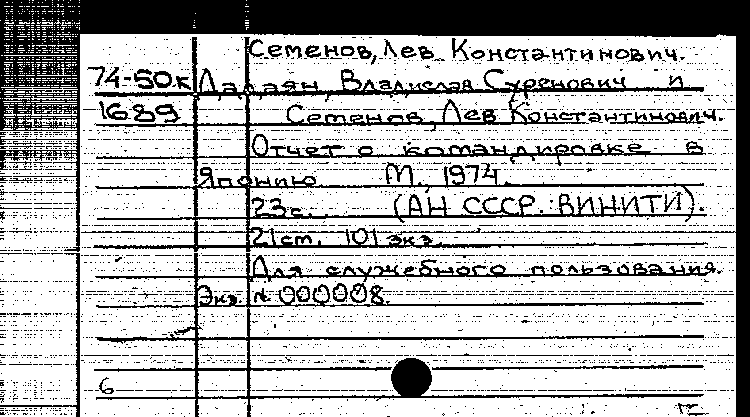 Семенов, Лев Константинович.
74-50к Далаян, Владислав Суренович и
1689 Семенов, Лев Константинович.
Отчет о командировке в
Японию М., 1974.
23с. (АН СССР. ВИНИТИ).
21см. 101 экз.
Для служебного пользования.
Экз. № 000008.
6